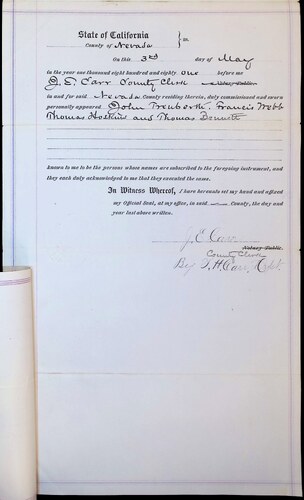 State of California } ss.
County of Nevada
On this 3rd day of May
in the year one thousand eight hundred and eighty one before me
J. E. Carr County Clerk a Notary Public
in and for said Nevada County residing therein, duly commissioned and sworn
personally appeared John Trenberth, Francis Webb
Thomas Hoskins and Thomas Bennett
known to me to be the persons whose names are subscribed to the foregoing instrument, and
they each duly acknowledged to me that they executed the same.
In Witness Whereof, I have hereunto set my hand and affixed
my Official Seal, at my office, in said County, the day and
year last above written.
J. E. Carr
Notary Public.
County Clerk
By T. H. Carr, Dept.